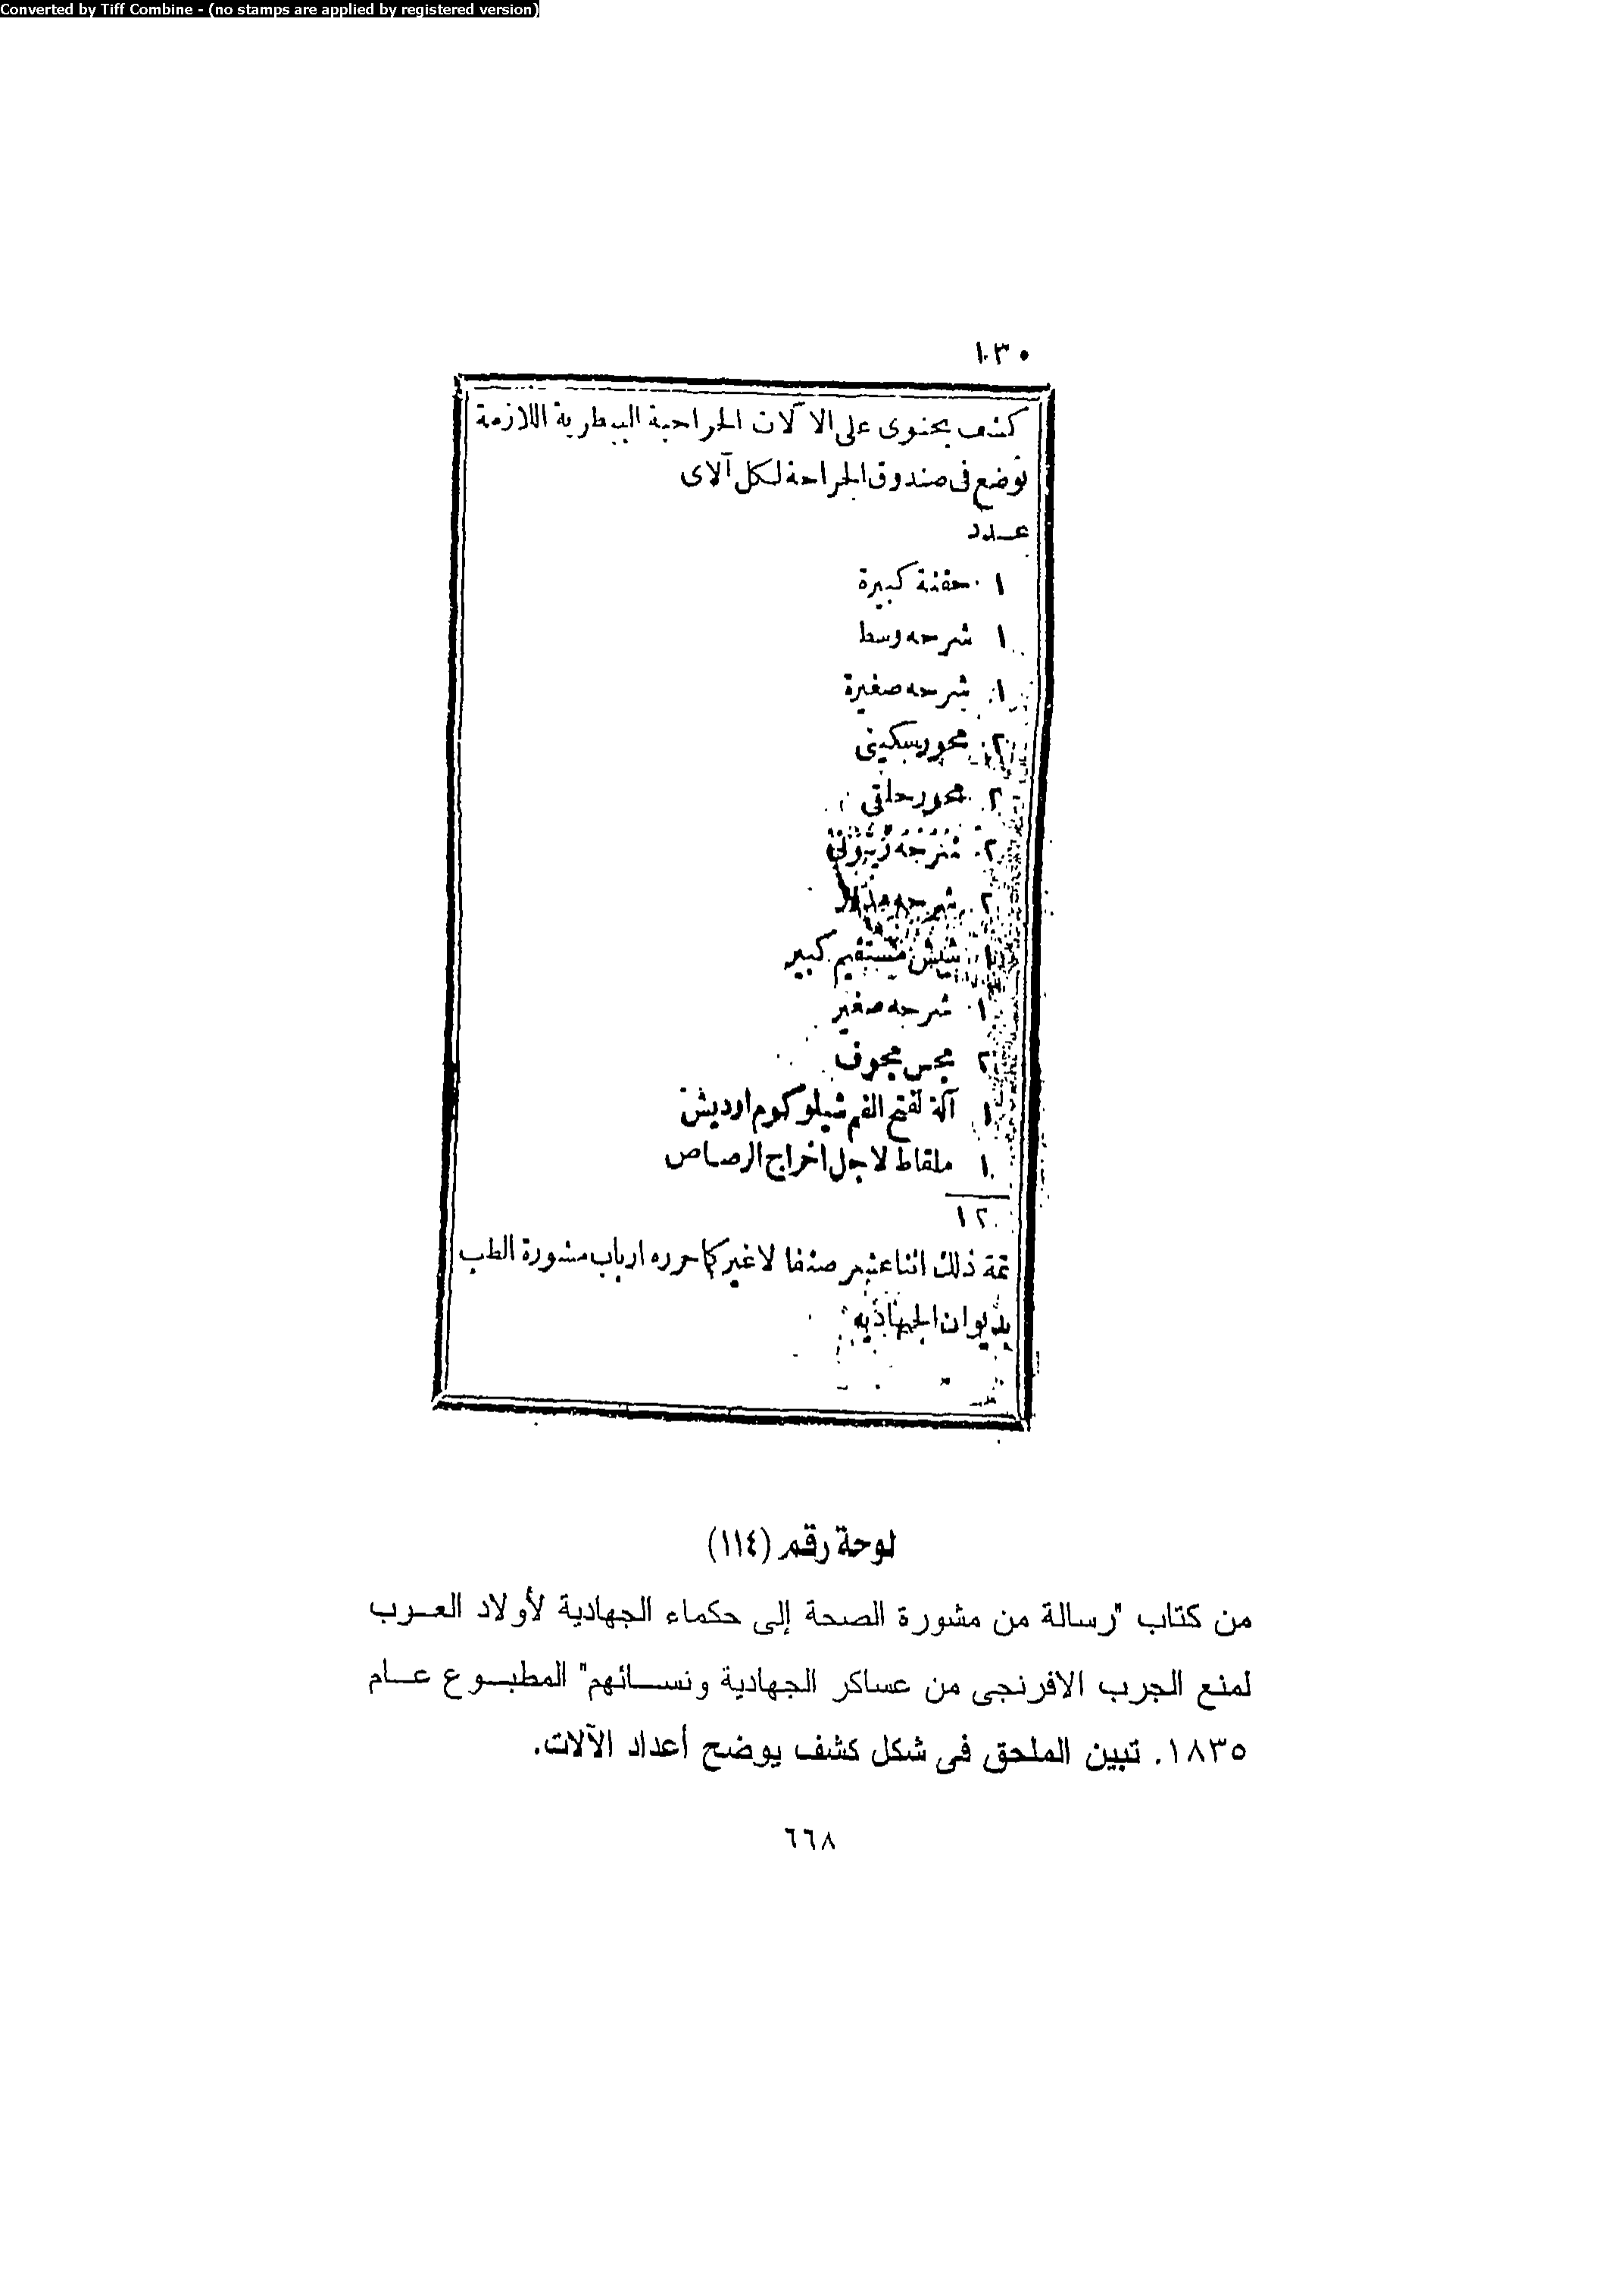 Converted by Tiff Combine - (no stamps are applied by registered version)
١٠٣٠
كشف يحتوى على الا ٓلات الجراحية البيطرية اللازمة
توضع فى صندوق الجراحة لكل آلاى
عـدد
١ حقنة كبيرة
١ شرحه وسط
١ شرحه صغيرة
٢ محور سكينى
٢ محور حلقى
٢ شرحه زيتونى
٢ شرحه
١ شيش مستقيم كبير
١ شرحه صغير
٢ مجس مجوف
١ آلة لفتح الفم شيلوكوم اوديش
١ ملقاط لاجل اخراج الرصاص
١٢
تمة ذلك اثنا عشر صنفا لاغير كما حرره ارباب مشورة الطب
بديوان الجهاديه
لوحة رقم (١١٤)
من كتاب "رسالة من مشورة الصحة إلى حكماء الجهادية لأولاد العـرب
لمنع الجرب الافرنجى من عساكر الجهادية ونسـائهم" المطبـوع عـام
١٨٣٥. تبين الملحق فى شكل كشف يوضح أعداد الآلات.
٦٦٨